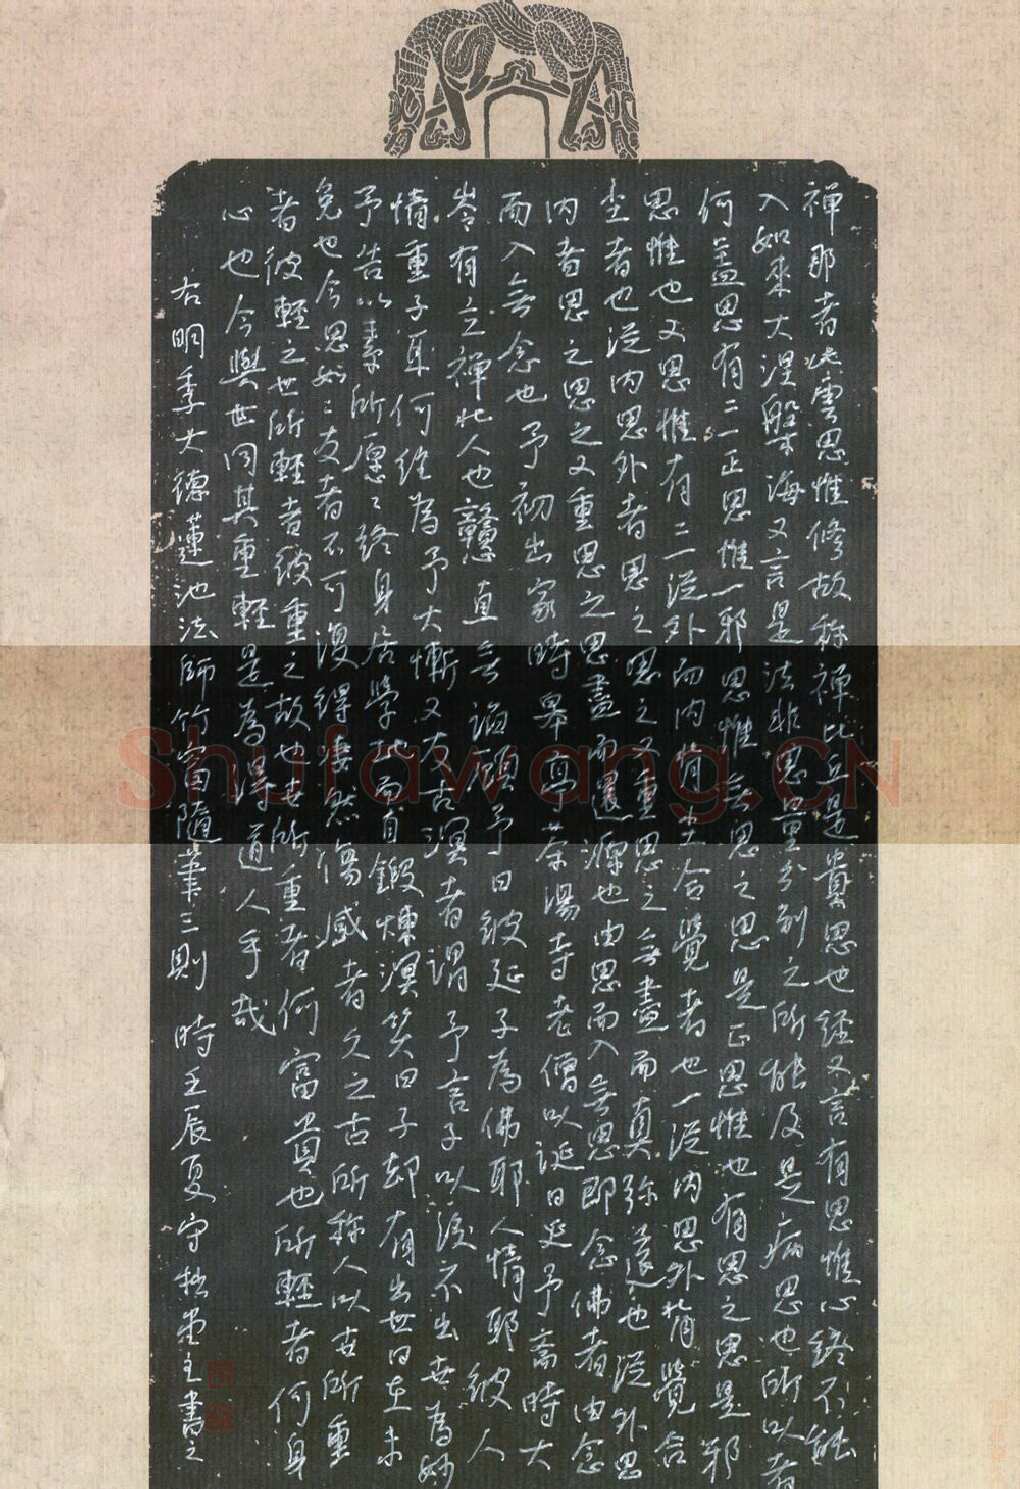 禅那者此云思惟修故称禅比丘是贵思也经又言有思惟心终不能
入如来大涅槃海又言是法非思量分别之所能及是病思也所以者
何盖思有二一正思惟一邪思惟无思之思是正思惟也有思之思是邪
思惟也又思惟有二一从外而内背尘合觉者也一从内思外背觉合
尘者也从内思外者思之思之又重思之无盡而真弥遠也从外思
内者思之思之又重思之思盡而還源也由思而入无思即念佛者由念
而入无念也予初出家時皋亭茶湯寺老僧以诞日延予斋時大
岑有立禅北人也戆直无谄顾予曰彼延子為佛耶人情耶彼人
情重子耳何往為予大慚又友古溟者谓予言子以後不出世為妙
予告以素所愿〻终身居学地而自鍛煉溟笑曰子却有出世日在未
免也今思如〻友者不可復得凄然傷感者久之古所称人以世所重
者彼輕之世所輕者彼重之故也世所重者何富貴也所輕者何身
心也今與世同其重輕是為得道人乎哉
右明季大德蓮池法師竹窗随筆三則 時壬辰夏守拙堂主書之
Shufawang.CN